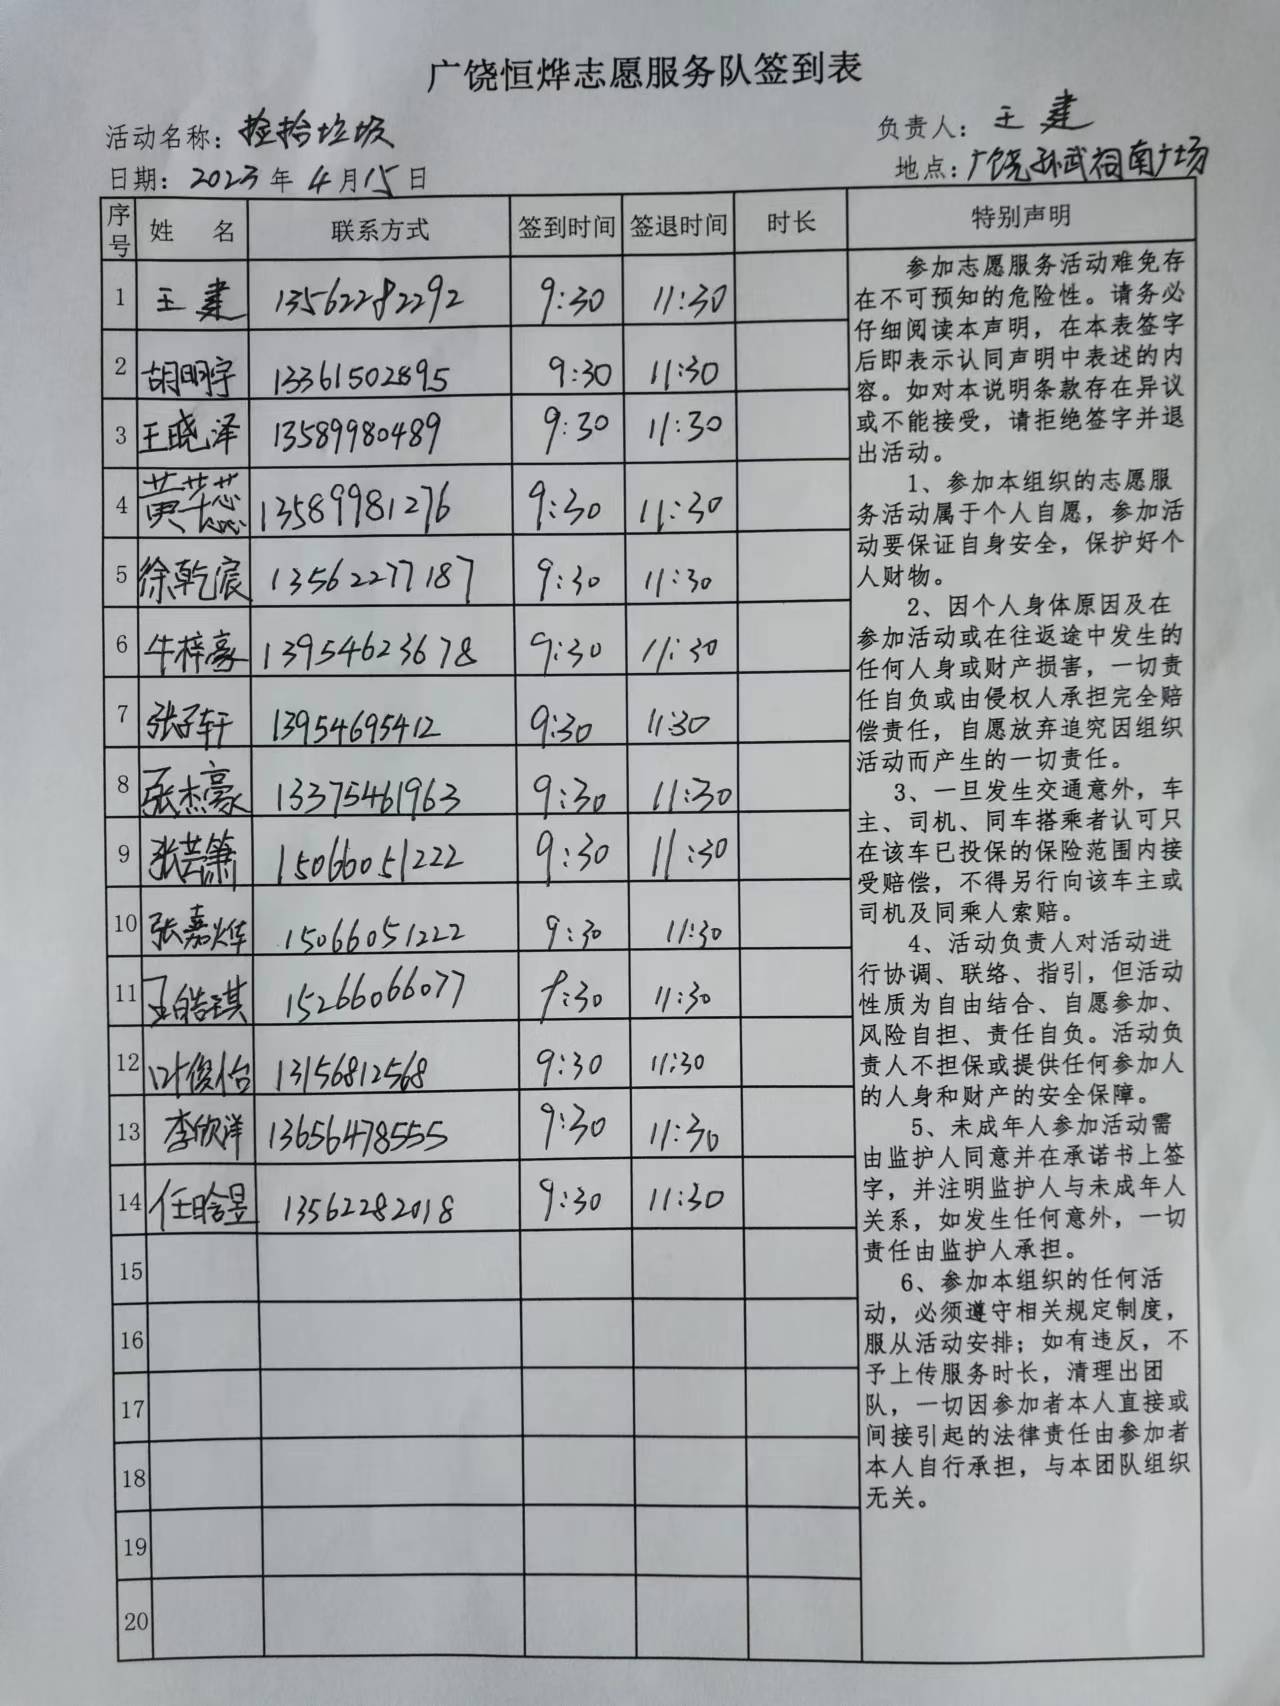 广饶恒烨志愿服务队签到表
活动名称：捡拾垃圾
负责人：王建
日期：2023年4月15日
地点：广饶孙武祠南广场
序号 姓 名 联系方式 签到时间 签退时间 时长 特别声明
1 王建 13562282292 9:30 11:30
2 胡明宇 13361502895 9:30 11:30
3 王晓泽 13589980489 9:30 11:30
4 黄芊蕊 13589981276 9:30 11:30
5 徐乾宸 13562277187 9:30 11:30
6 牛梓豪 13954623678 9:30 11:30
7 张子轩 13954695412 9:30 11:30
8 张杰豪 13375461963 9:30 11:30
9 张芸箫 15066051222 9:30 11:30
10 张嘉烨 15066051222 9:30 11:30
11 王皓琪 15266066077 9:30 11:30
12 叶俊怡 13156812568 9:30 11:30
13 李欣洋 13656478555 9:30 11:30
14 任晗昱 13562282018 9:30 11:30
15
16
17
18
19
20
参加志愿服务活动难免存
在不可预知的危险性。请务必
仔细阅读本声明，在本表签字
后即表示认同声明中表述的内
容。如对本说明条款存在异议
或不能接受，请拒绝签字并退
出活动。
1、参加本组织的志愿服
务活动属于个人自愿，参加活
动要保证自身安全，保护好个
人财物。
2、因个人身体原因及在
参加活动或在往返途中发生的
任何人身或财产损害，一切责
任自负或由侵权人承担完全赔
偿责任，自愿放弃追究因组织
活动而产生的一切责任。
3、一旦发生交通意外，车
主、司机、同车搭乘者认可只
在该车已投保的保险范围内接
受赔偿，不得另行向该车主或
司机及同乘人索赔。
4、活动负责人对活动进
行协调、联络、指引，但活动
性质为自由结合、自愿参加、
风险自担、责任自负。活动负
责人不担保或提供任何参加人
的人身和财产的安全保障。
5、未成年人参加活动需
由监护人同意并在承诺书上签
字，并注明监护人与未成年人
关系，如发生任何意外，一切
责任由监护人承担。
6、参加本组织的任何活
动，必须遵守相关规定制度，
服从活动安排；如有违反，不
予上传服务时长，清理出团
队，一切因参加者本人直接或
间接引起的法律责任由参加者
本人自行承担，与本团队组织
无关。